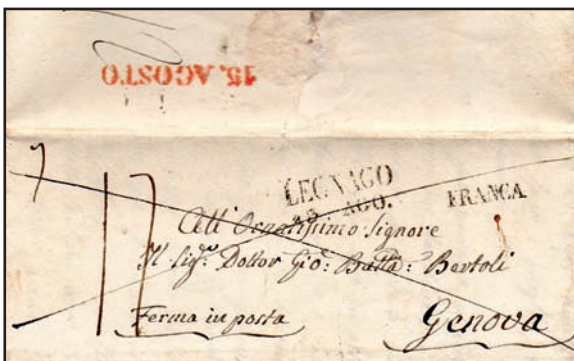 15. AGOSTO
LEGNAGO
AGO.
FRANCA
All' Ornatissimo Signore
Il Sigr: Dottor Gio: Batta: Bertoli
Ferma in posta
Genova